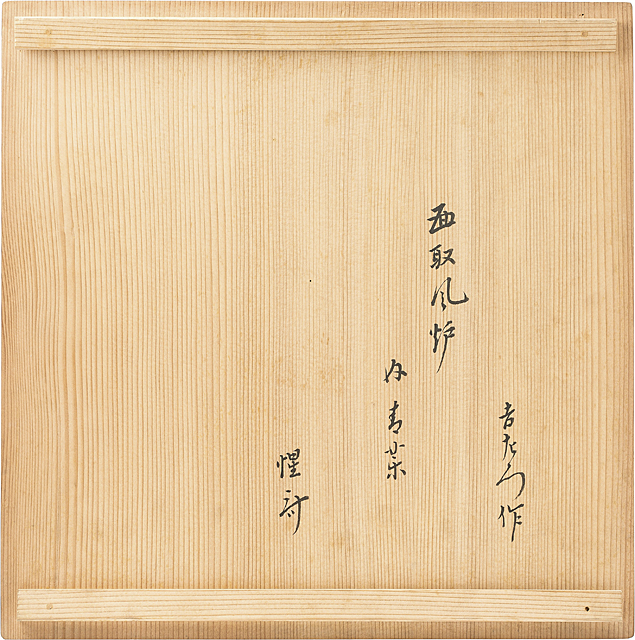 吉左衛門作
面取風炉
内 青葉
惺斎